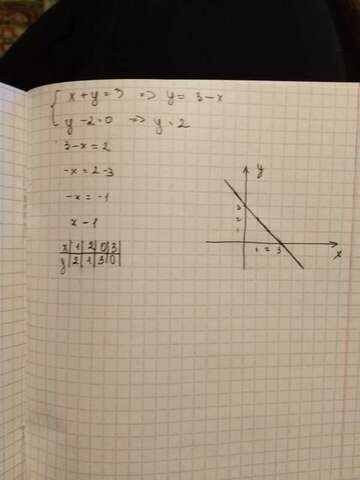 x + y = 3 => y = 3 - x
y - 2 = 0 => y = 2
3 - x = 2
-x = 2 - 3
-x = -1
x - 1
x | 1 | 2 | 0 | 3
y | 2 | 1 | 3 | 0
y
3
2
1
1 2 3
x